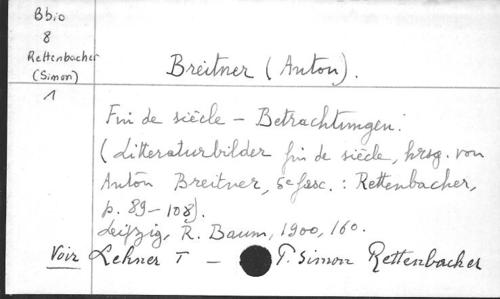 Bbio
8
Rettenbacher
(Simon)
1
Breitner (Anton).
Fin de siècle – Betrachtungen.
(Litteraturbilder fin de siècle, hrsg. von
Anton Breitner, 5e fasc. : Rettenbacher,
p. 89–108).
Leipzig, R. Baum, 1900, 160.
Voir Lehner T – P. Simon Rettenbacher